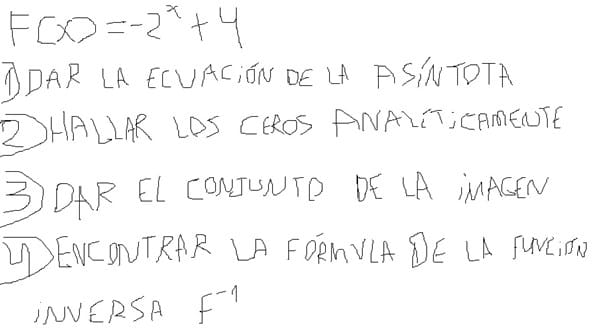 F(x)=-2^x+4
1) DAR LA ECUACIÓN DE LA ASÍNTOTA
2) HALLAR LOS CEROS ANALÍTICAMENTE
3) DAR EL CONJUNTO DE LA IMAGEN
4) ENCONTRAR LA FÓRMULA DE LA FUNCIÓN
INVERSA F^-1